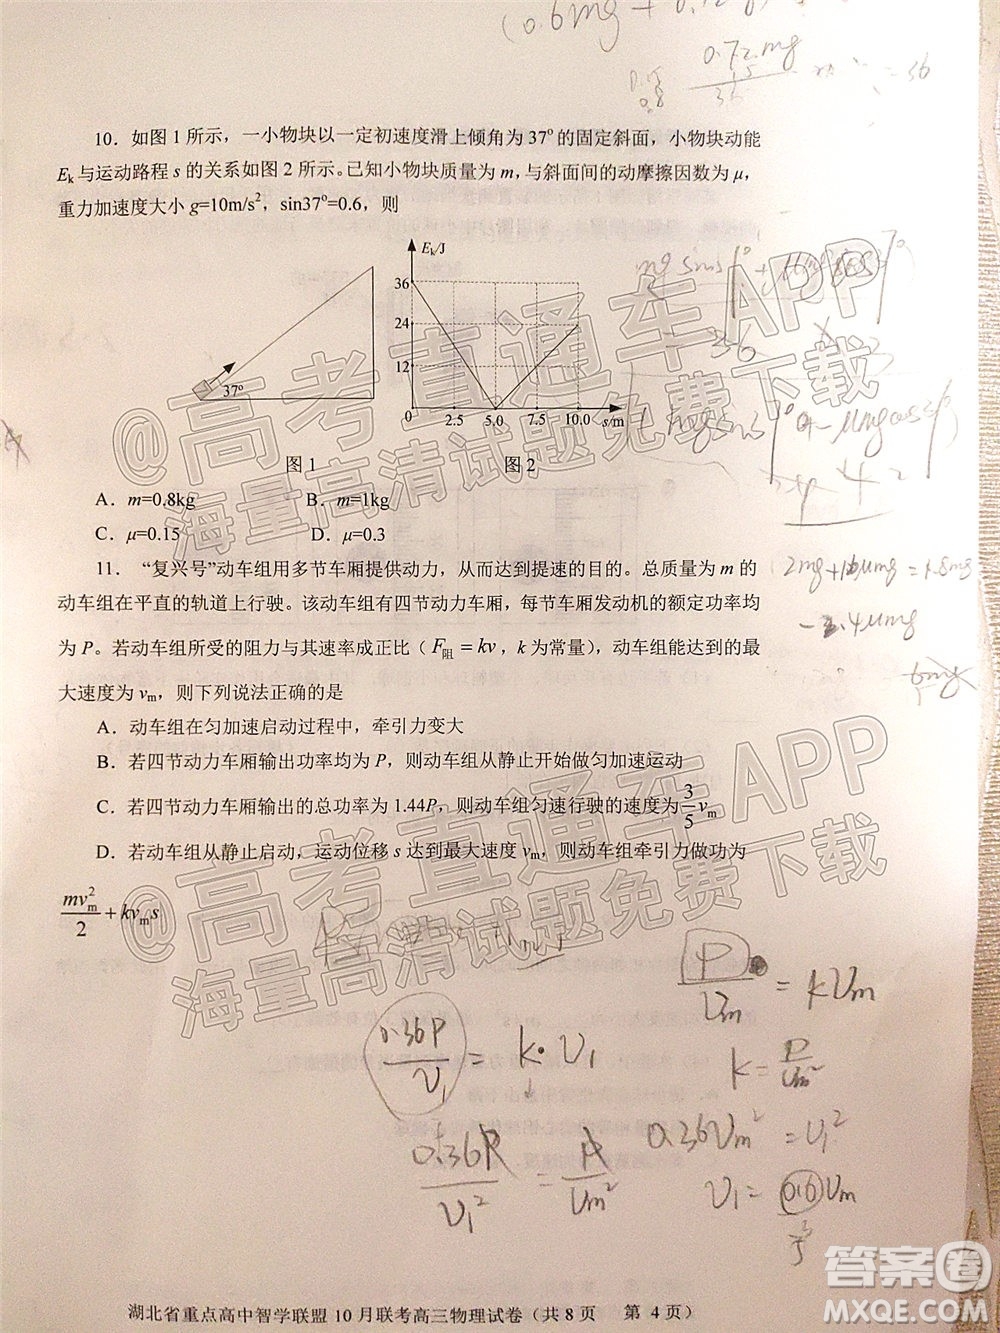 (0.6mg +
0.72mg
36
= 36
10．如图 1 所示，一小物块以一定初速度滑上倾角为 37°的固定斜面，小物块动能
Ek 与运动路程 s 的关系如图 2 所示。已知小物块质量为 m，与斜面间的动摩擦因数为 μ，
重力加速度大小 g=10m/s²，sin37°=0.6，则
Ek/J
36
24
12
0
2.5
5.0
7.5
10.0
s/m
37°
图 1
图 2
A．m=0.8kg
B．m=1kg
C．μ=0.15
D．μ=0.3
11．“复兴号”动车组用多节车厢提供动力，从而达到提速的目的。总质量为 m 的
动车组在平直的轨道上行驶。该动车组有四节动力车厢，每节车厢发动机的额定功率均
为 P。若动车组所受的阻力与其速率成正比（F阻=kv，k 为常量），动车组能达到的最
大速度为 vm，则下列说法正确的是
A．动车组在匀加速启动过程中，牵引力变大
B．若四节动力车厢输出功率均为 P，则动车组从静止开始做匀加速运动
C．若四节动力车厢输出的总功率为 1.44P，则动车组匀速行驶的速度为 3/5 vm
D．若动车组从静止启动，运动位移 s 达到最大速度 vm，则动车组牵引力做功为
mvm²/2 + kvms
P/Vm = kVm
0.36P/V1 = k·V1
k = P/Vm²
0.36P/V1² = P/Vm²
0.36Vm² = V1²
V1 = 0.6Vm
@高考直通车APP
海量高清试题免费下载
@高考直通车APP
海量高清试题免费下载
湖北省重点高中智学联盟 10 月联考高三物理试卷（共 8 页 第 4 页）
答案圈
MXQE.COM